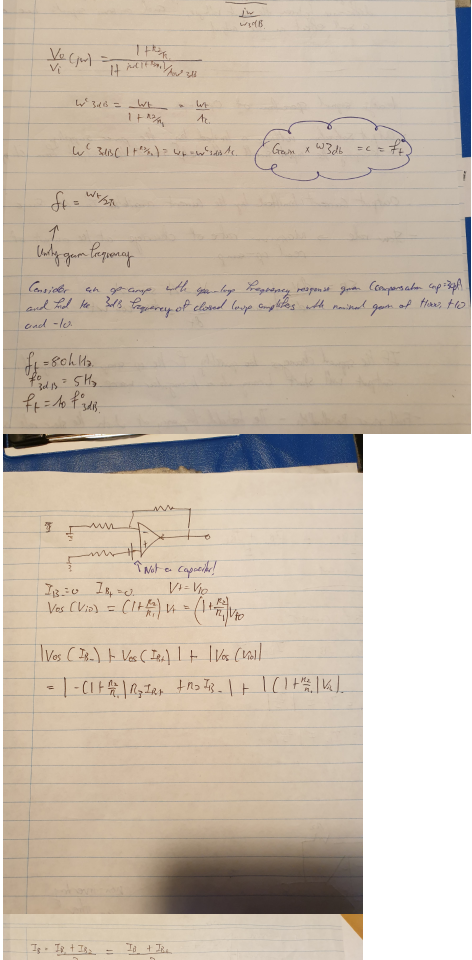 jω
ω3dB
Vo/Vi (jω) = 1+R2/R1 / 1+ jω(1+R2/R1)/Aoω°3dB
ωᶜ3dB = ωt / 1+R2/R1 = ωt/Ac
ωᶜ3dB(1+R2/R1) = ωt = ωᶜ3dB Ac
Gain x ω3db = c = ft
ft = ωt/2π
↑
Unity gain frequency
Consider an op-amp with open-loop frequency response given (compensation cap=30pF
and find the 3dB frequency of closed loop amplifiers with nominal gain of +1000, +10
and -10.
ft = 80kHz.
f°3dB = 5Hz
ft = Ao f°3dB.
↑ Not a capacitor!
IB- = 0 IB+ = 0. V+ = Vio
Vos (Vio) = (1+R2/R1) V+ = (1+R2/R1) Vio
|Vos (IB-) + Vos (IB+)| + |Vos (Vio)|
= |-(1+R2/R1) R3 IB+ + R2 IB-| + |(1+R2/R1) Vio|.